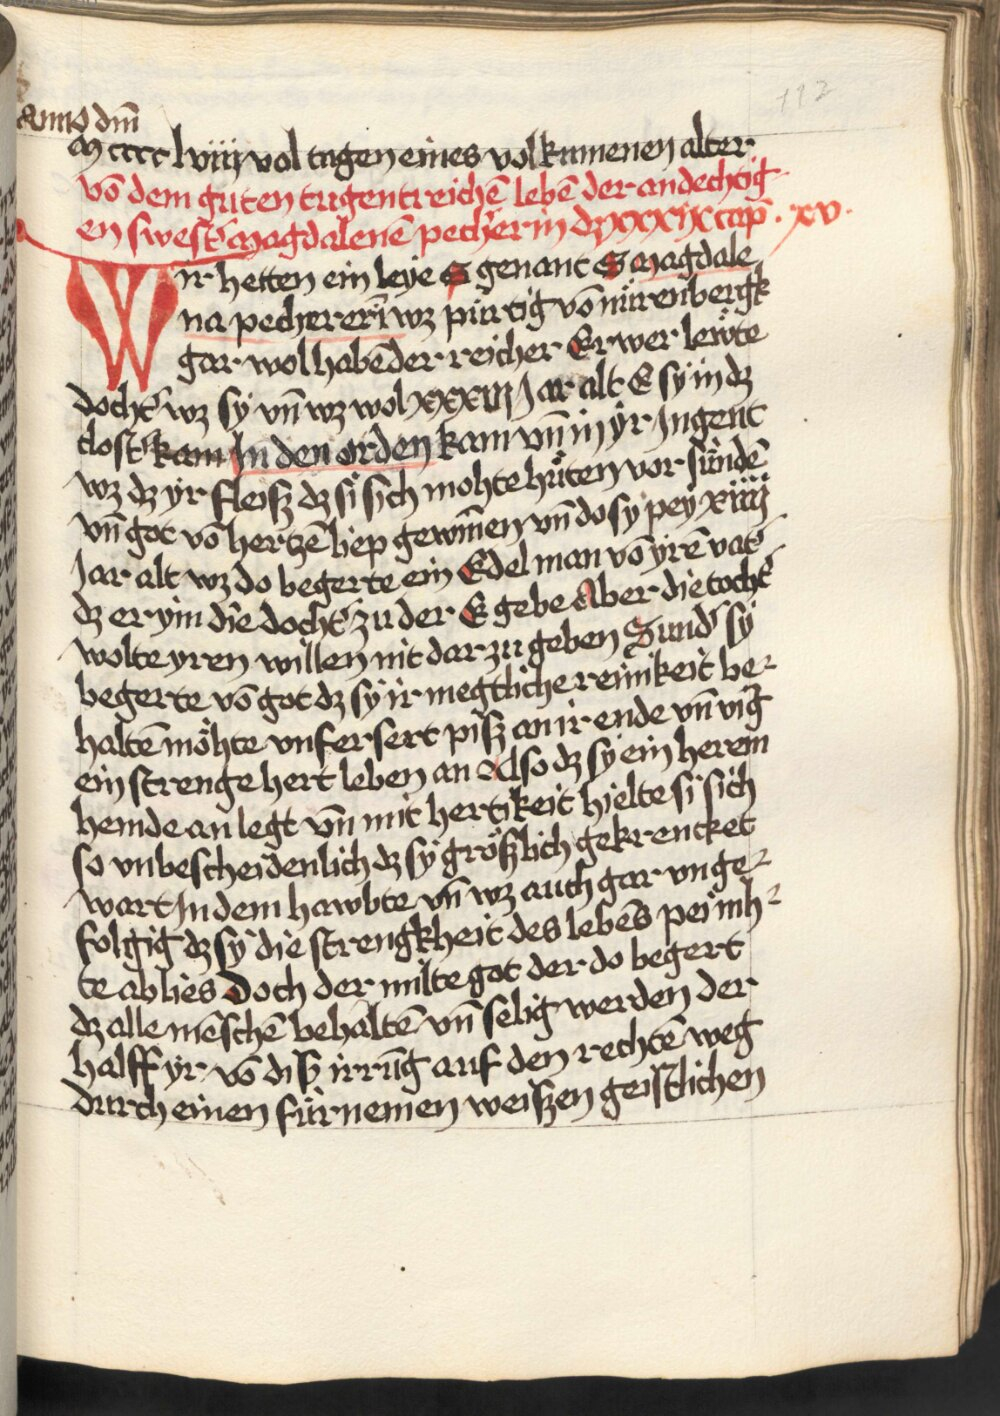 112
Anno dm̄
M cccc lviij vol tagen eines volkumenen alter
võ dem guten tugentreichē lebē der andechtig-
en swest' magdalenē pecherin dz xxxix cap̄ · xv ·
Wir hetten ein leye S genant S magdale
na pechererin wz pürtig võ nürenbergk
gar wol habēder reicher Erwer lewte
docht' wz sy vn̄ wz wol xxxiiij Jar alt E sy in dz
clost' kam In den orden kam vn̄ in yr Jngent
wz dz yr fleisz dz si sich mohte hüten vor sündē
vn̄ got võ hertzē liep gewin̄en vn̄ do sy pey xiiij
Jar alt wz do begerte ein Edel man võ yrē vat'
dz er ym die docht' zu der E gebe Aber die tocht'
wolte yren willen nit dar zu geben Sund' sy
begerte võ got dz sy ir megtliche reinikeit be-
haltē möhte vnfersert pisz an ir ende vn̄ vīg
ein strenge hert leben an Also dz sy ein herein
hemde an legt vn̄ mit hertikeit hielte si sich
so vnbescheidenlich dz sy gröszlich gekrencket
wart In dem hawbte vn̄ wz auch gar vnge-
folgig dz sy die strengkheit des lebēs pei nih-
te ablies Doch der milte got der do begert
dz alle mēschē behaltē vn̄ selig werden der
halff yr võ disz irrūg auf den rechtē weg
durch einen fürnemen weiszen geistlichen